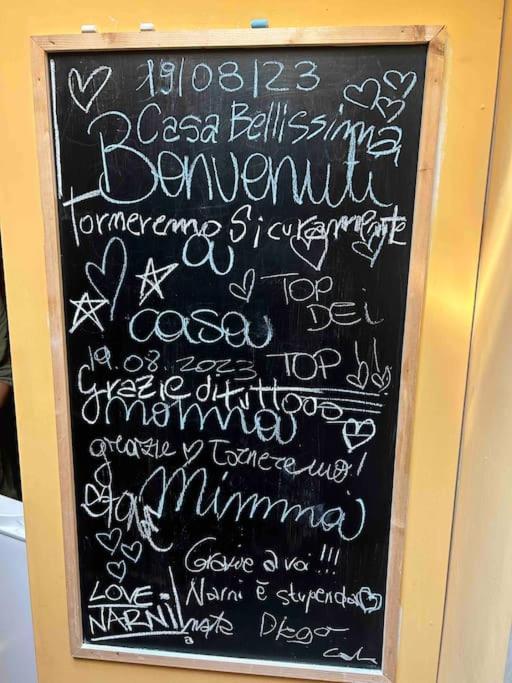 19/08/23
Casa Bellissima
Benvenuti
Torneremo Sicuramente
a
TOP
DEI
casa
19.08.2023 TOP
Grazie di tutto
nonna
grazie Torneremo!
Mimma
Grazie a voi!!!
LOVE
Narni è stupenda
NARNI
Diego